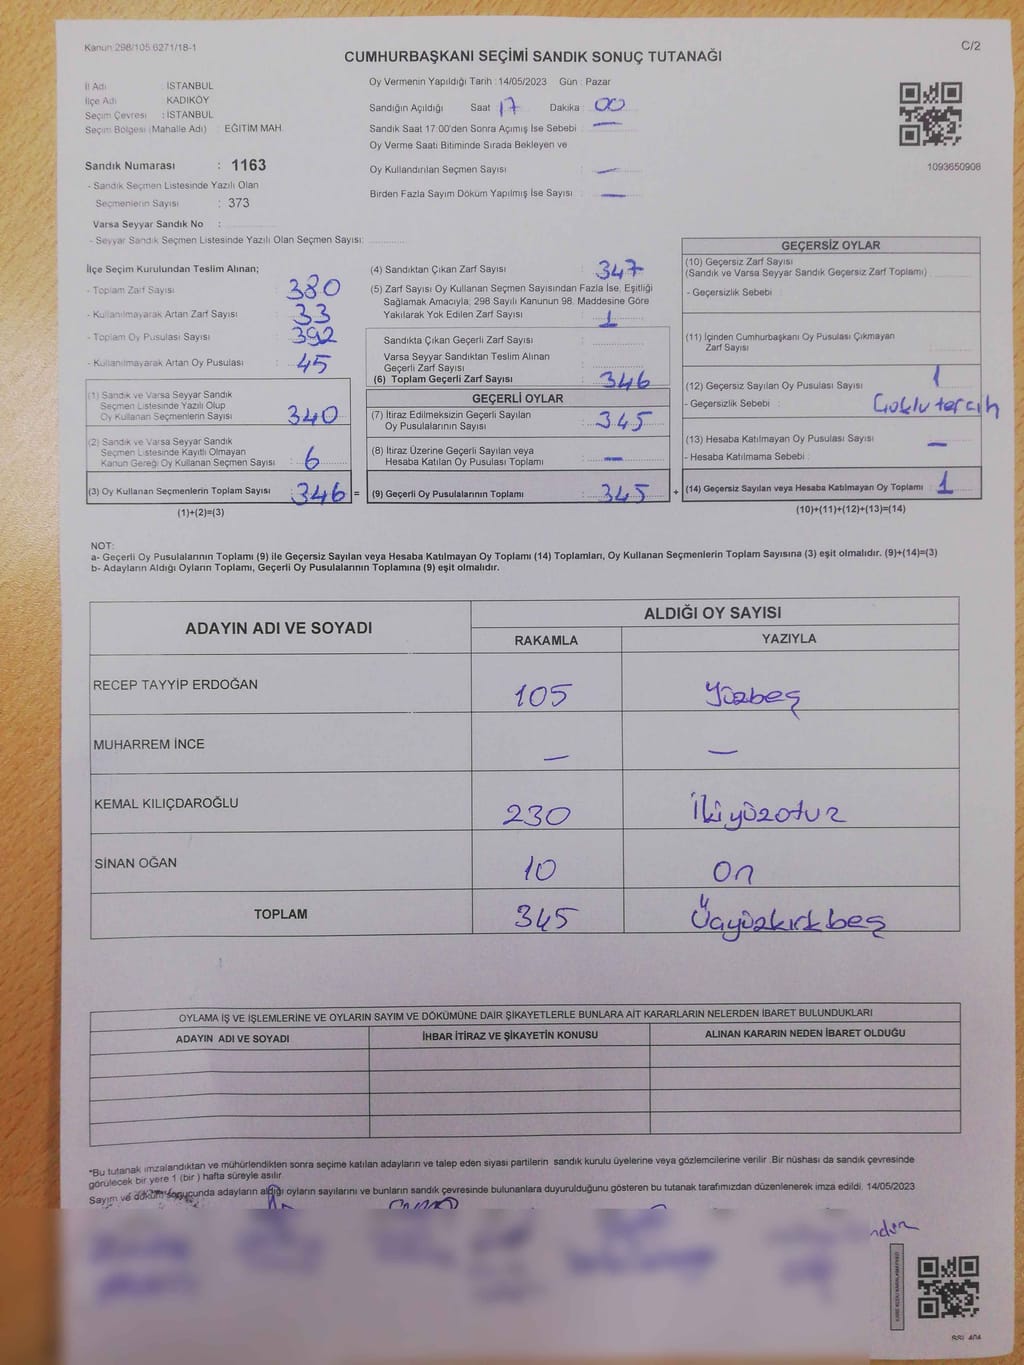 Kanun:298/105.6271/18-1
C/2
CUMHURBAŞKANI SEÇİMİ SANDIK SONUÇ TUTANAĞI
İl Adı : İSTANBUL
İlçe Adı : KADIKÖY
Seçim Çevresi : İSTANBUL
Seçim Bölgesi (Mahalle Adı) : EĞİTİM MAH.
Sandık Numarası : 1163
- Sandık Seçmen Listesinde Yazılı Olan
Seçmenlerin Sayısı : 373
Varsa Seyyar Sandık No :
- Seyyar Sandık Seçmen Listesinde Yazılı Olan Seçmen Sayısı:
Oy Vermenin Yapıldığı Tarih :14/05/2023 Gün : Pazar
Sandığın Açıldığı Saat : 17 Dakika : 00
Sandık Saat 17:00'den Sonra Açımış İse Sebebi : —
Oy Verme Saati Bitiminde Sırada Bekleyen ve
Oy Kullandırılan Seçmen Sayısı : —
Birden Fazla Sayım Döküm Yapılmış İse Sayısı : —
1093650908
İlçe Seçim Kurulundan Teslim Alınan;
- Toplam Zarf Sayısı : 380
- Kullanılmayarak Artan Zarf Sayısı : 33
- Toplam Oy Pusulası Sayısı : 392
- Kullanılmayarak Artan Oy Pusulası : 45
(1) Sandık ve Varsa Seyyar Sandık
Seçmen Listesinde Yazılı Olup
Oy Kullanan Seçmenlerin Sayısı : 340
(2) Sandık ve Varsa Seyyar Sandık
Seçmen Listesinde Kayıtlı Olmayan
Kanun Gereği Oy Kullanan Seçmen Sayısı : 6
(3) Oy Kullanan Seçmenlerin Toplam Sayısı : 346 =
(1)+(2)=(3)
(4) Sandıktan Çıkan Zarf Sayısı : 347
(5) Zarf Sayısı Oy Kullanan Seçmen Sayısından Fazla İse, Eşitliği
Sağlamak Amacıyla; 298 Sayılı Kanunun 98. Maddesine Göre
Yakılarak Yok Edilen Zarf Sayısı : 1
Sandıkta Çıkan Geçerli Zarf Sayısı :
Varsa Seyyar Sandıktan Teslim Alınan
Geçerli Zarf Sayısı :
(6) Toplam Geçerli Zarf Sayısı : 346
GEÇERLİ OYLAR
(7) İtiraz Edilmeksizin Geçerli Sayılan
Oy Pusulalarının Sayısı : 345
(8) İtiraz Üzerine Geçerli Sayılan veya
Hesaba Katılan Oy Pusulası Toplamı : —
(9) Geçerli Oy Pusulalarının Toplamı : 345 +
GEÇERSİZ OYLAR
(10) Geçersiz Zarf Sayısı :
(Sandık ve Varsa Seyyar Sandık Geçersiz Zarf Toplamı)
- Geçersizlik Sebebi :
(11) İçinden Cumhurbaşkanı Oy Pusulası Çıkmayan
Zarf Sayısı :
(12) Geçersiz Sayılan Oy Pusulası Sayısı : 1
- Geçersizlik Sebebi : Çoklu tercih
(13) Hesaba Katılmayan Oy Pusulası Sayısı : —
- Hesaba Katılmama Sebebi :
(14) Geçersiz Sayılan veya Hesaba Katılmayan Oy Toplamı : 1
(10)+(11)+(12)+(13)=(14)
NOT:
a- Geçerli Oy Pusulalarının Toplamı (9) ile Geçersiz Sayılan veya Hesaba Katılmayan Oy Toplamı (14) Toplamları, Oy Kullanan Seçmenlerin Toplam Sayısına (3) eşit olmalıdır. (9)+(14)=(3)
b- Adayların Aldığı Oyların Toplamı, Geçerli Oy Pusulalarının Toplamına (9) eşit olmalıdır.
ADAYIN ADI VE SOYADI
ALDIĞI OY SAYISI
RAKAMLA YAZIYLA
RECEP TAYYİP ERDOĞAN 105 Yüzbeş
MUHARREM İNCE — —
KEMAL KILIÇDAROĞLU 230 İkiyüzotuz
SİNAN OĞAN 10 On
TOPLAM 345 Üçyüzkırkbeş
OYLAMA İŞ VE İŞLEMLERİNE VE OYLARIN SAYIM VE DÖKÜMÜNE DAİR ŞİKAYETLERLE BUNLARA AİT KARARLARIN NELERDEN İBARET BULUNDUKLARI
ADAYIN ADI VE SOYADI İHBAR İTİRAZ VE ŞİKAYETİN KONUSU ALINAN KARARIN NEDEN İBARET OLDUĞU
*Bu tutanak imzalandıktan ve mühürlendikten sonra seçime katılan adayların ve talep eden siyasi partilerin sandık kurulu üyelerine veya gözlemcilerine verilir .Bir nüshası da sandık çevresinde
görülecek bir yere 1 (bir ) hafta süreyle asılır.
Sayım ve döküm sonucunda adayların aldığı oyların sayılarını ve bunların sandık çevresinde bulunanlara duyurulduğunu gösteren bu tutanak tarafımızdan düzenlenerek imza edildi. 14/05/2023